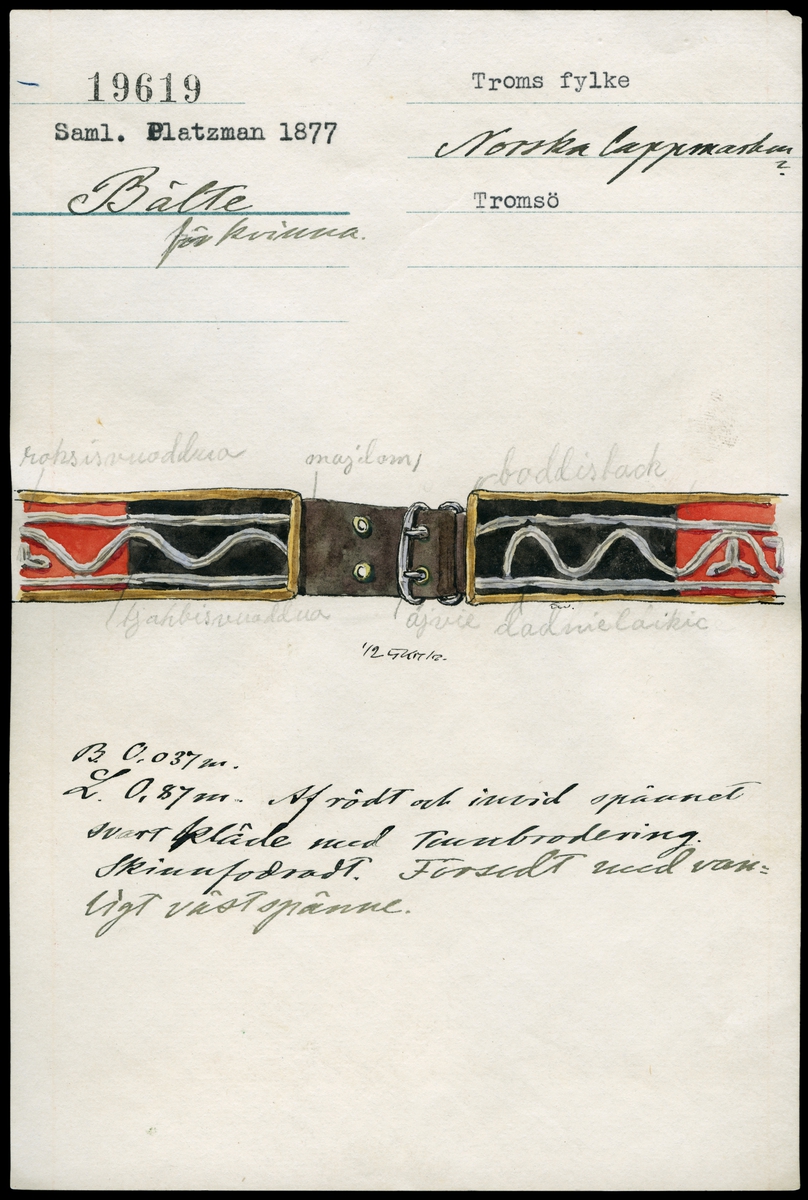 19619
Saml. Platzman 1877
Bälte
för kvinna.
Troms fylke
Norska lappmarken
?
Tromsö
roksisvuoddua
majdom
boddistack
tjahbisvuoddua
ájvie
dadnieláikie
1/2
B. 0,037 m.
L. 0,87 m. Af rödt och invid spännet
svart kläde med tennbrodering.
Skinnfodradt. Försedt med van=
ligt västspänne.